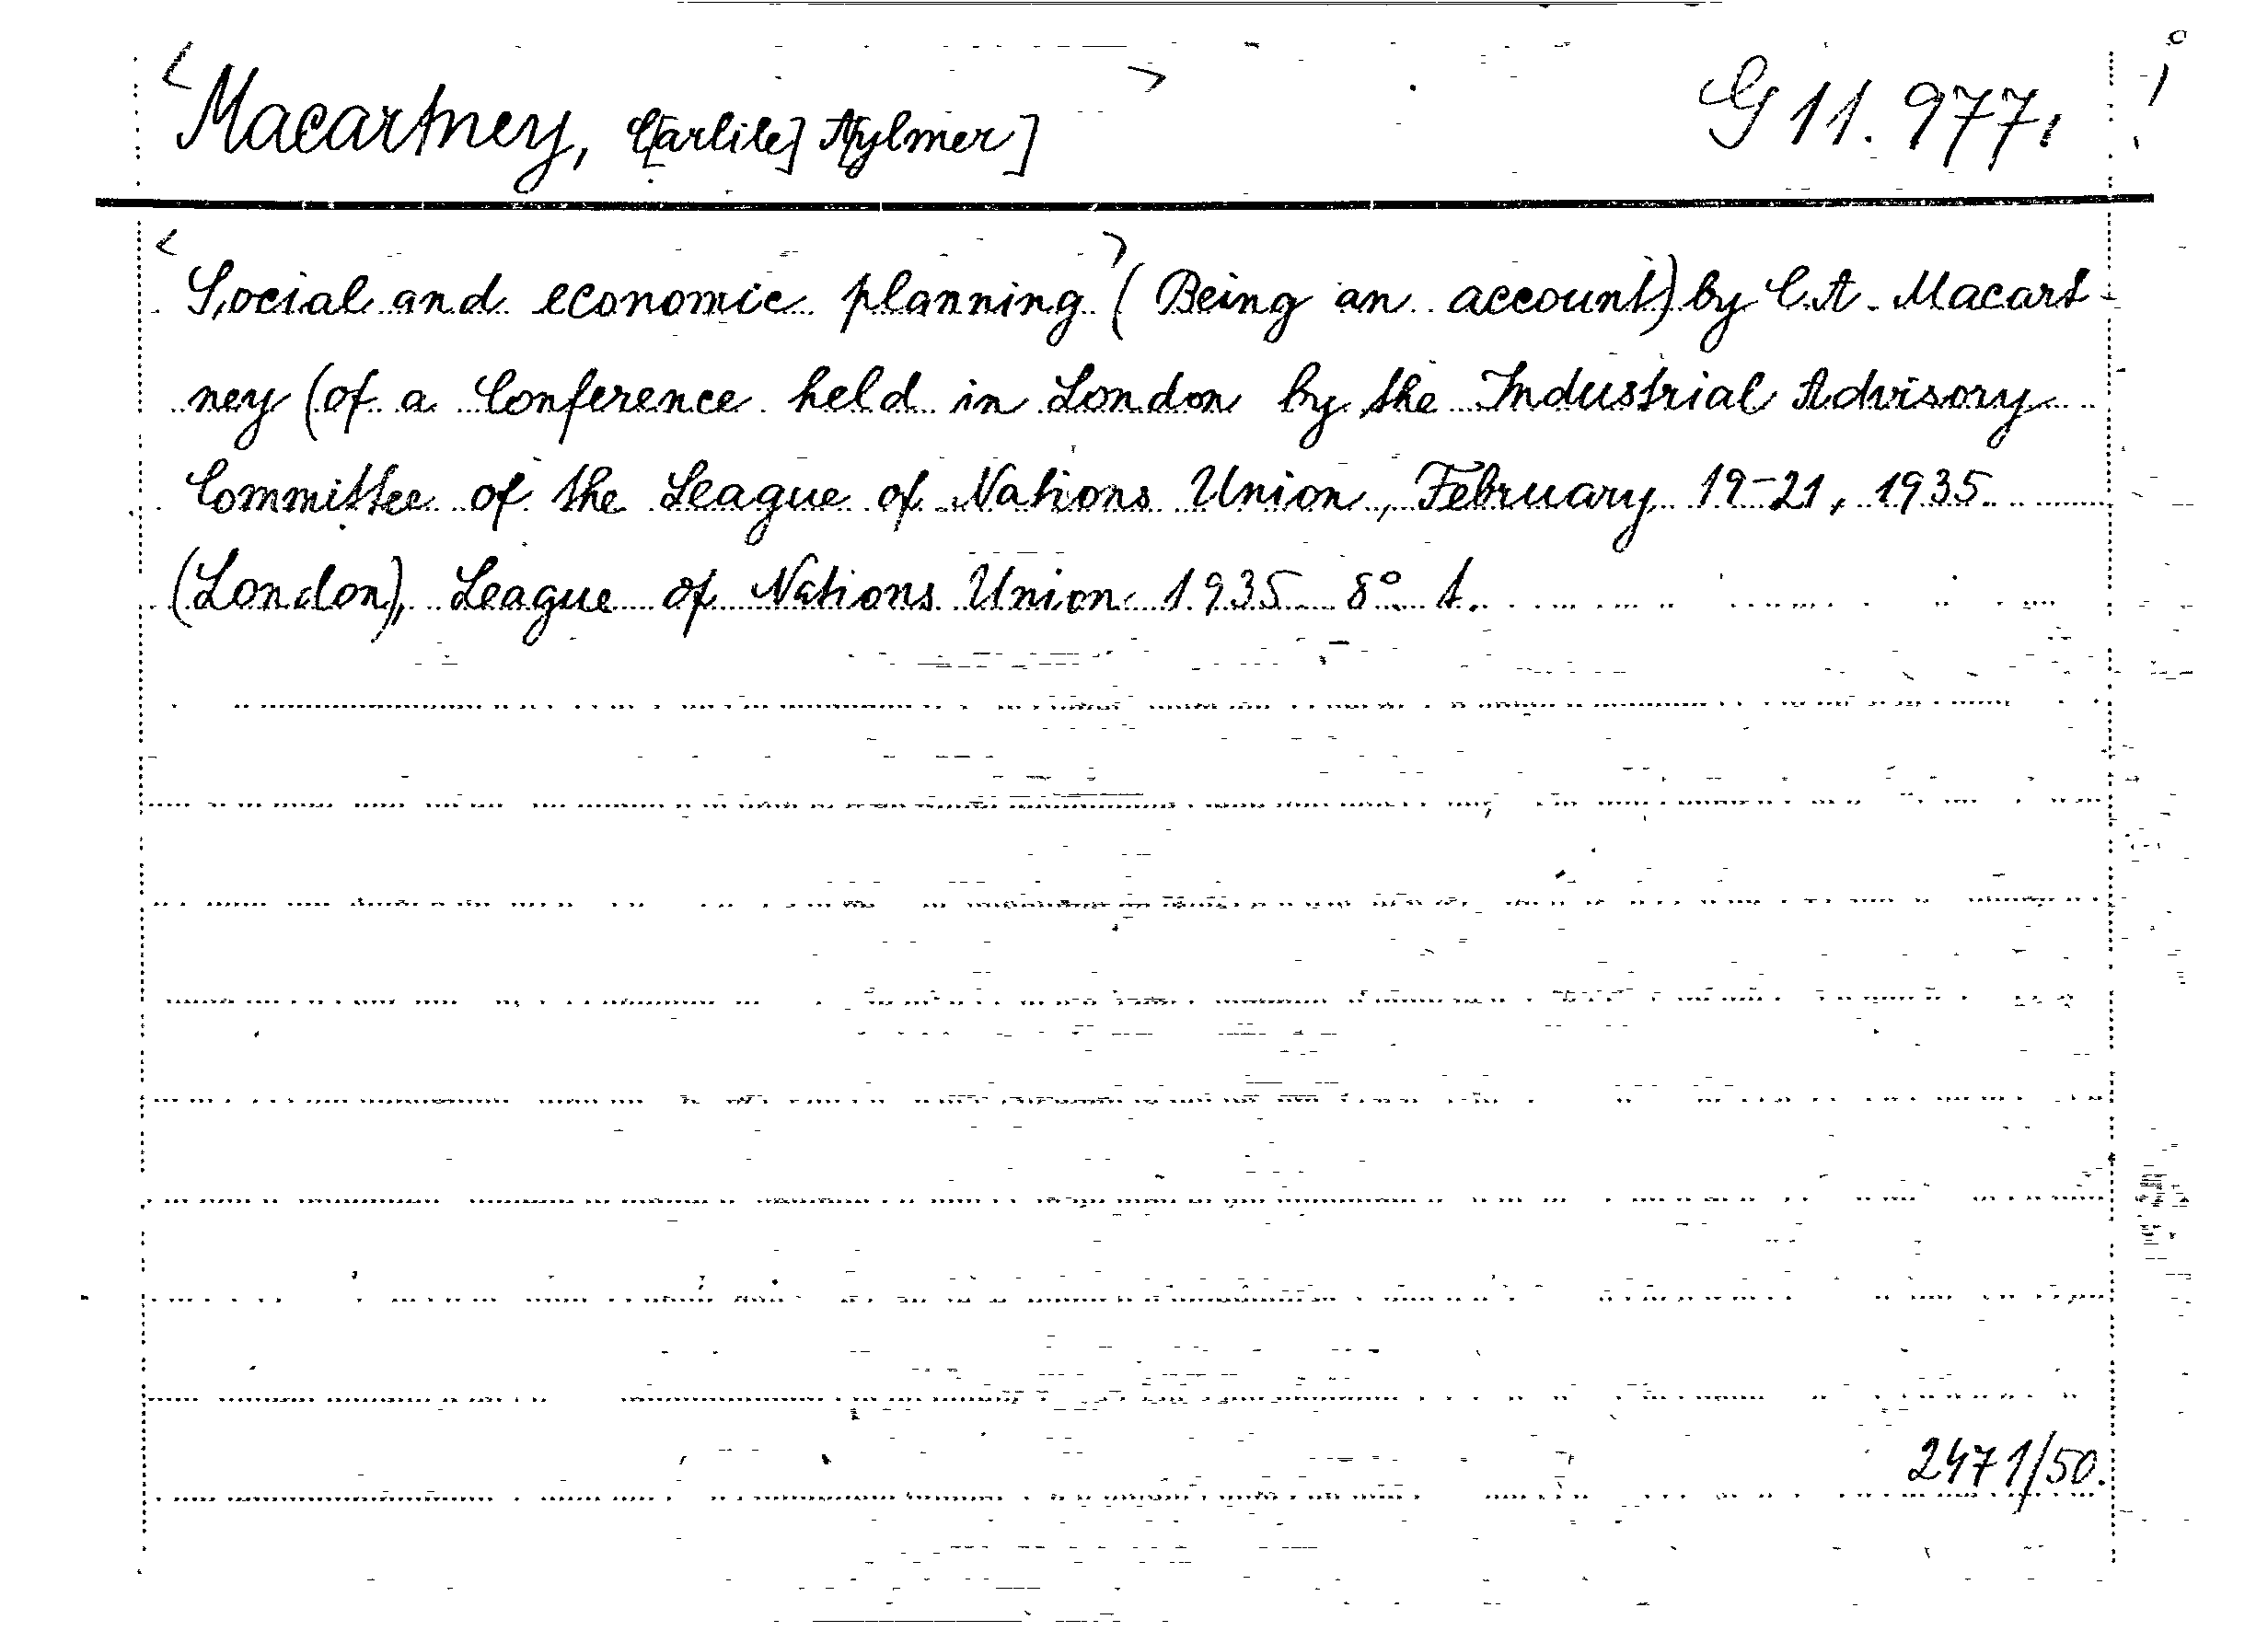 <Macartney, C[arlile] A[ylmer]> G 11.977.
<Social and economic planning> (Being an account) by C.A. Macart-
ney (of a Conference held in London by the Industrial Advisory
Committee of the League of Nations Union, February 19-21, 1935
(London), League of Nations Union 1935 8° t.
2471/50.